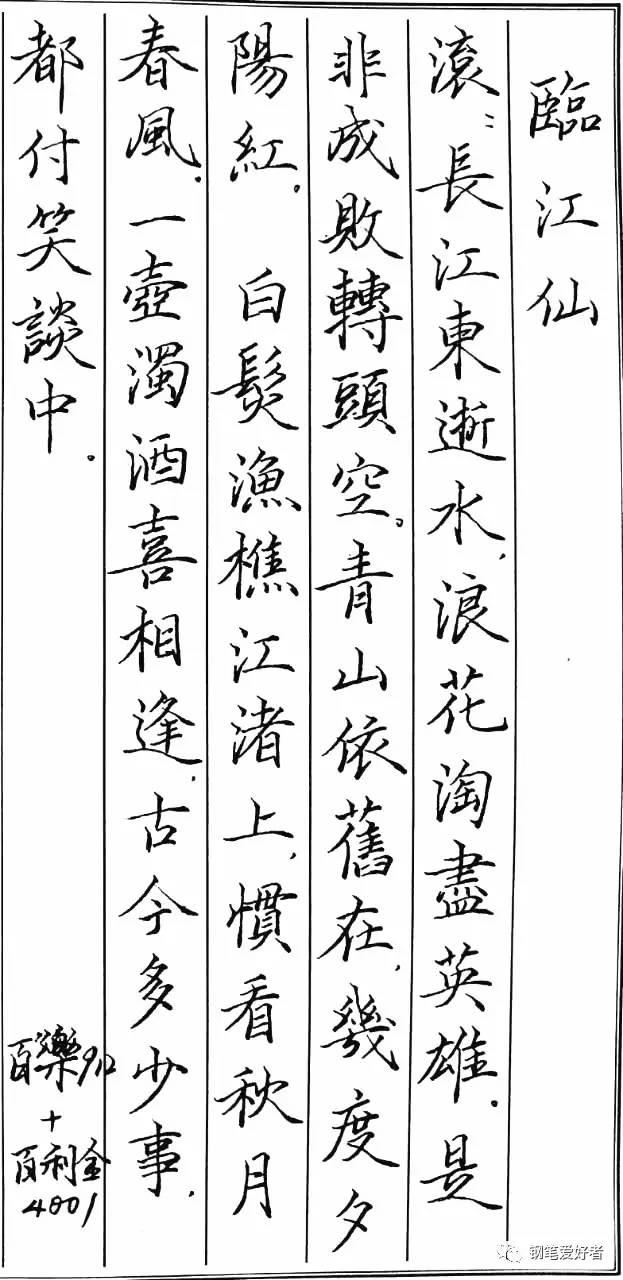 臨江仙
滾：長江東逝水，浪花淘盡英雄。是
非成敗轉頭空。青山依舊在，幾度夕
陽紅。 白髮漁樵江渚上，慣看秋月
春風。一壺濁酒喜相逢，古今多少事，
都付笑談中。
百樂912
+
百利金
4001
钢笔爱好者